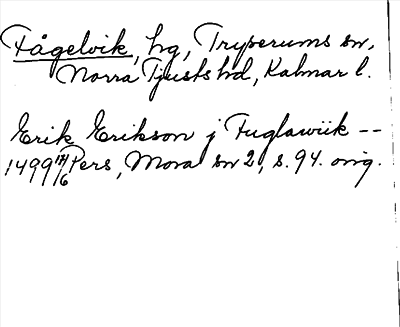 Fågelvik, hg, Tryserums sn,
Norra Tjusts hd, Kalmar l.
Erik Erikson j Fuglawiik --
1499 14/6 Pers, Mora sn 2, s. 94. orig.